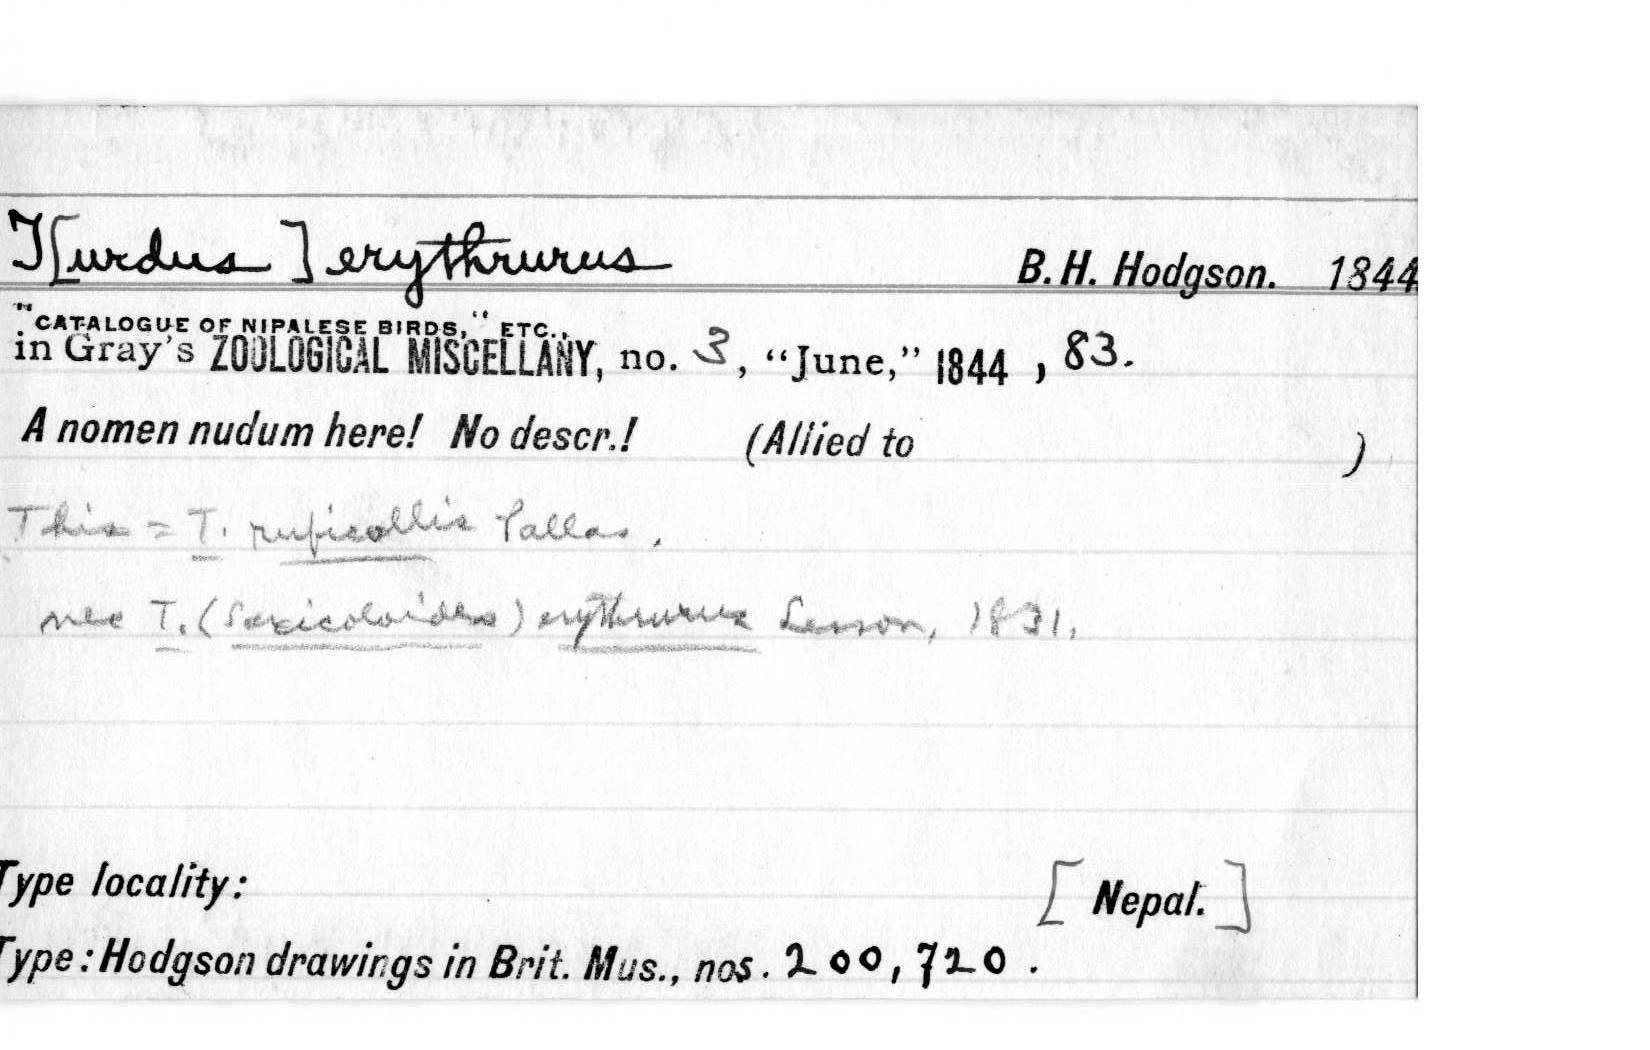 T[urdus] erythrurus B. H. Hodgson. 1844
"CATALOGUE OF NIPALESE BIRDS," ETC.,
in Gray's ZOOLOGICAL MISCELLANY, no. 3, "June," 1844, 83.
A nomen nudum here! No descr.! (Allied to )
This = T. ruficollis Pallas.
nec T. (Saxicoloides) erythrurus Lesson, 1831.
Type locality: [Nepal.]
Type: Hodgson drawings in Brit. Mus., nos. 200, 720.